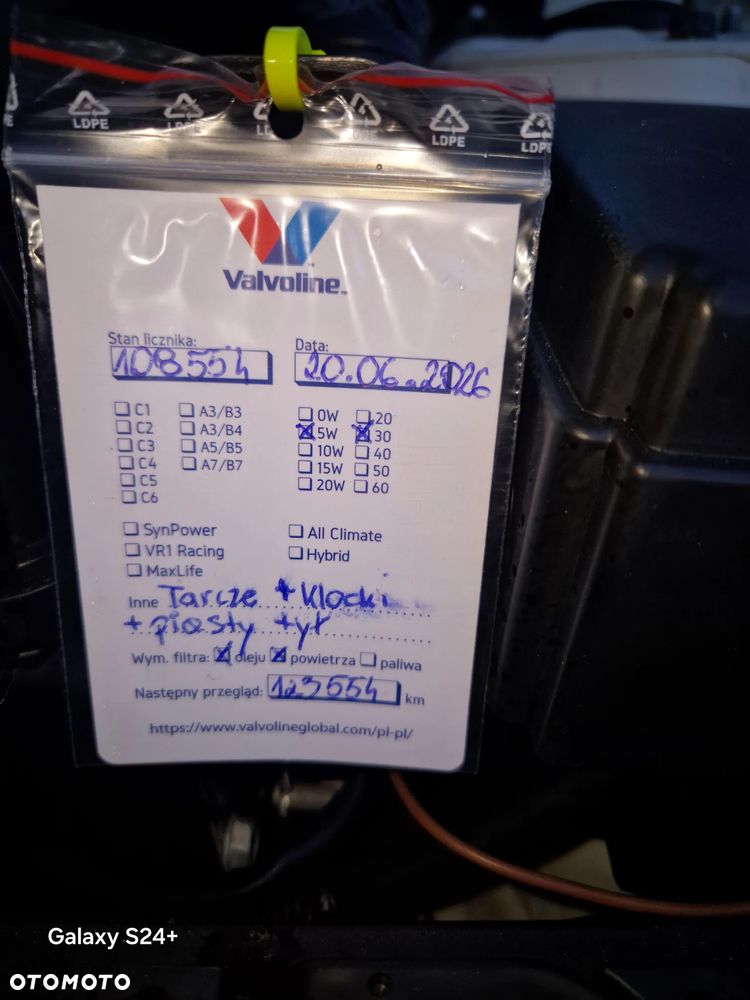 LDPE LDPE LDPE LDPE
Valvoline™
Stan licznika: Data:
108554 20.06.2026
C1 A3/B3 0W 20
C2 A3/B4 5W 30
C3 A5/B5 10W 40
C4 A7/B7 15W 50
C5 20W 60
C6
SynPower All Climate
VR1 Racing Hybrid
MaxLife
Inne Tarcze + Klocki
+ piasty tył
Wym. filtra: oleju powietrza paliwa
Następny przegląd: 123554 km
https://www.valvolineglobal.com/pl-pl/
Galaxy S24+
OTOMOTO